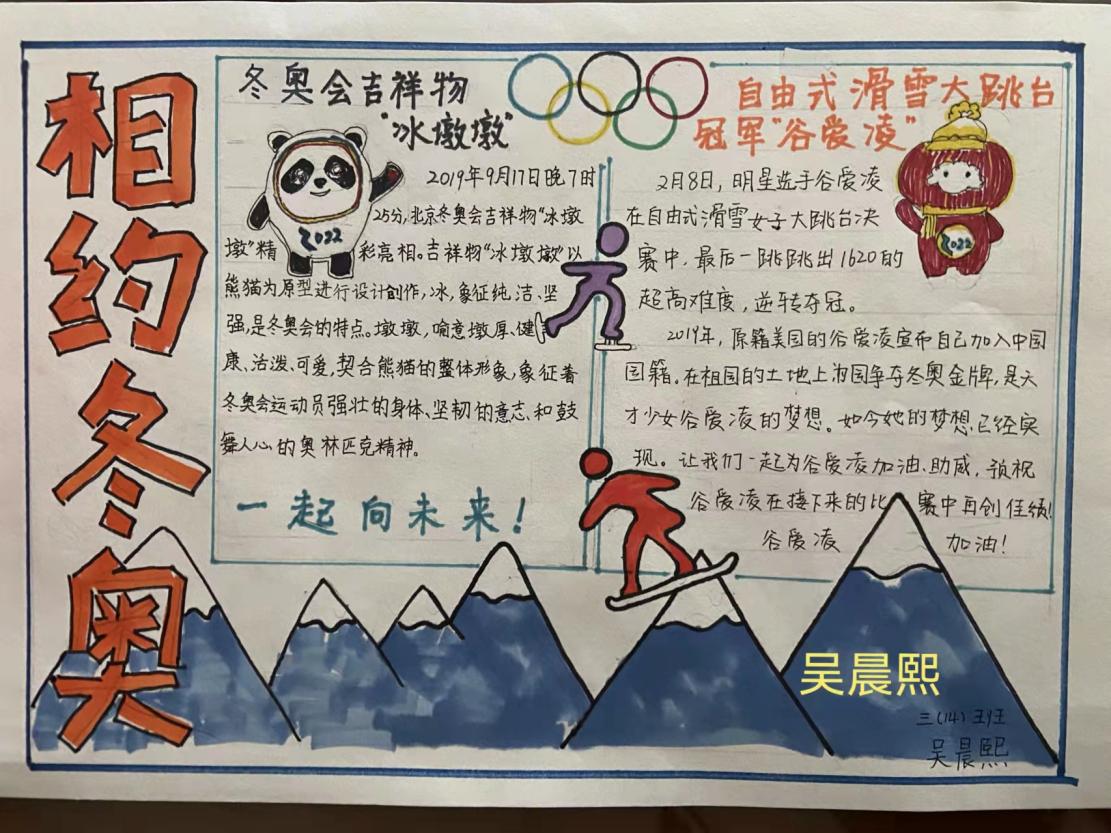 相约冬奥
冬奥会吉祥物
"冰墩墩"
2019年9月17日晚7时
25分,北京冬奥会吉祥物"冰墩
墩"精彩亮相。吉祥物"冰墩墩"以
熊猫为原型进行设计创作,冰,象征纯、洁、坚
强,是冬奥会的特点。墩墩,喻意墩厚、健
康、活泼、可爱,契合熊猫的整体形象,象征着
冬奥会运动员强壮的身体、坚韧的意志、和鼓
舞人心的奥林匹克精神。
2022
一起向未来!
自由式滑雪大跳台
冠军"谷爱凌"
2月8日,明星选手谷爱凌
在自由式滑雪女子大跳台决
赛中,最后一跳跳出1620的
超高难度,逆转夺冠。
2022
2019年,原籍美国的谷爱凌宣布自己加入中国
国籍。在祖国的土地上为国争夺冬奥金牌,是天
才少女谷爱凌的梦想。如今她的梦想已经实
现。让我们一起为谷爱凌加油、助威,预祝
谷爱凌在接下来的比赛中再创佳绩!
谷爱凌加油!
吴晨熙
三(14)班
吴晨熙